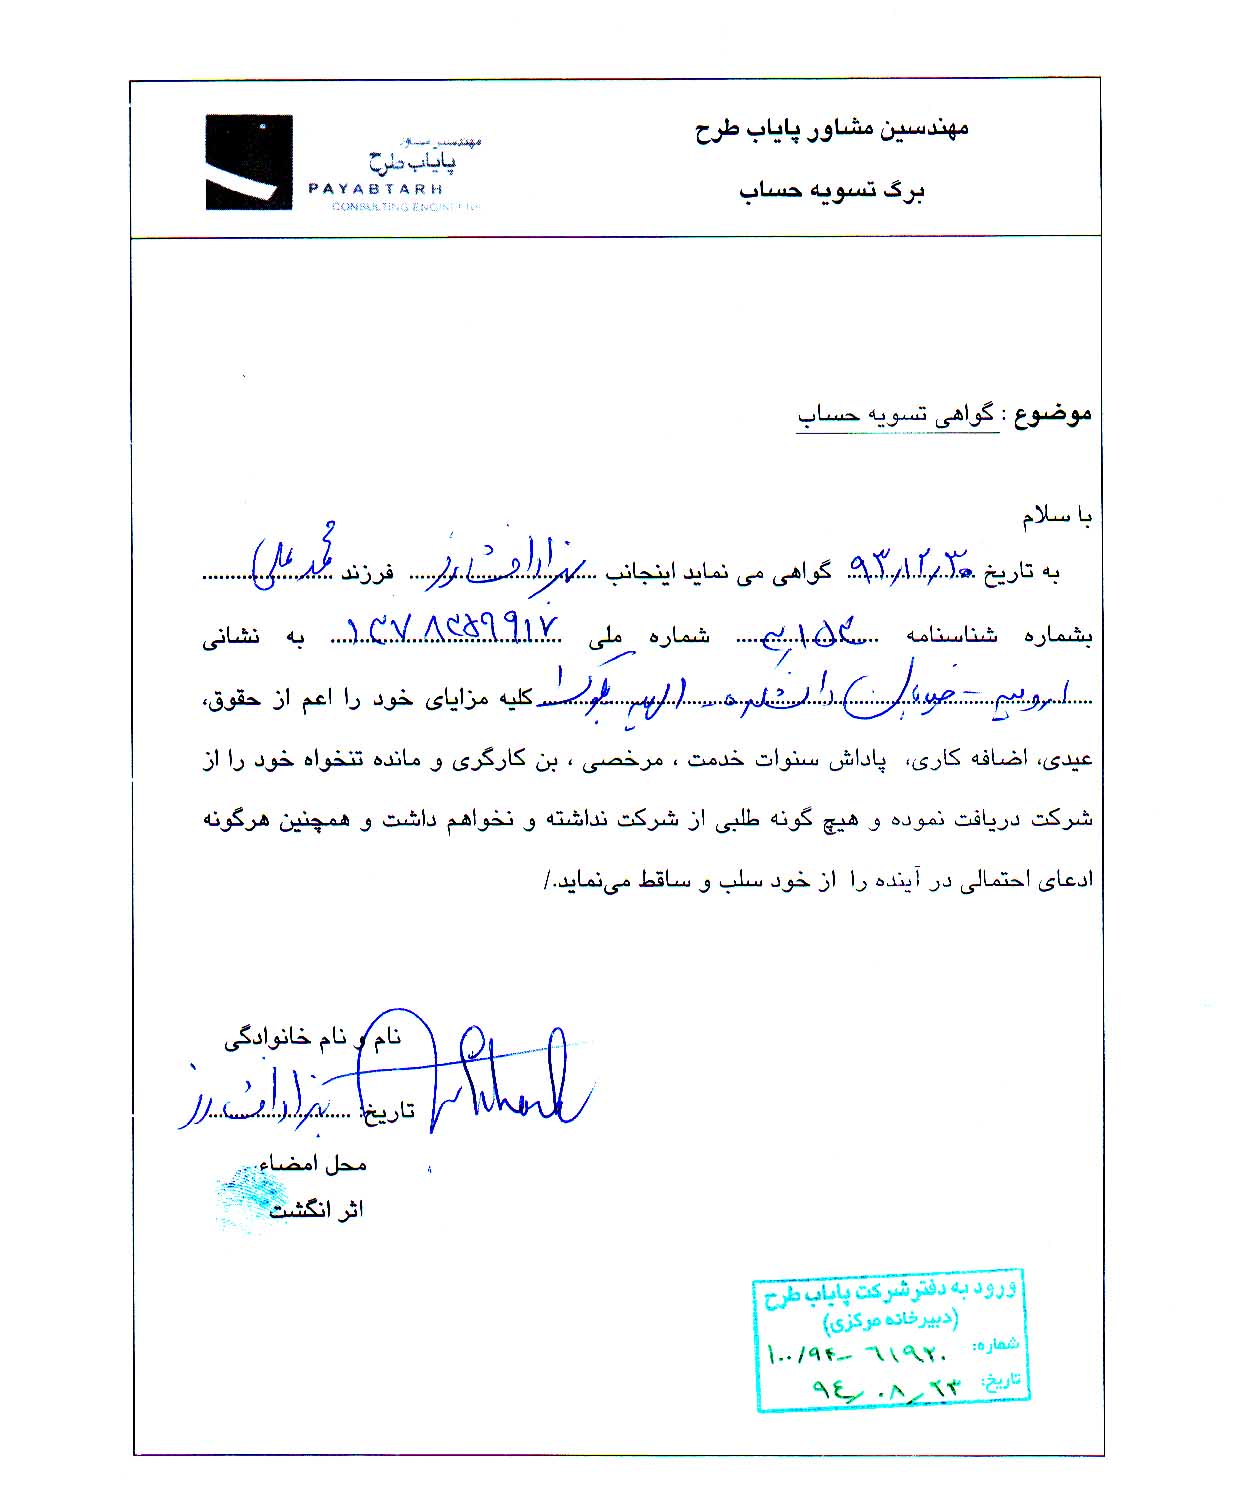 مهندسین مشاور پایاب طرح
برگ تسویه حساب
مهندسین مشاور
پایاب طرح
PAYABTARH
CONSULTING ENGINEERS
موضوع : گواهی تسویه حساب
با سلام
به تاریخ ۹۳٫۱۲٫۳۰ گواهی می نماید اینجانب فرزند محمد علی
بشماره شناسنامه شماره ملی به نشانی
ارومیه - خیابان دانشکده - کلیه مزایای خود را اعم از حقوق،
عیدی، اضافه کاری، پاداش سنوات خدمت ، مرخصی ، بن کارگری و مانده تنخواه خود را از
شرکت دریافت نموده و هیچ گونه طلبی از شرکت نداشته و نخواهم داشت و همچنین هرگونه
ادعای احتمالی در آینده را از خود سلب و ساقط می‌نماید./
نام و نام خانوادگی
تاریخ:
محل امضاء
اثر انگشت
ورود به دفتر شرکت پایاب طرح
(دبیرخانه مرکزی)
شماره: ۱۰۰/۹۴-۶۱۹۲۰
تاریخ: ۹٤٫۰۸٫۲۳